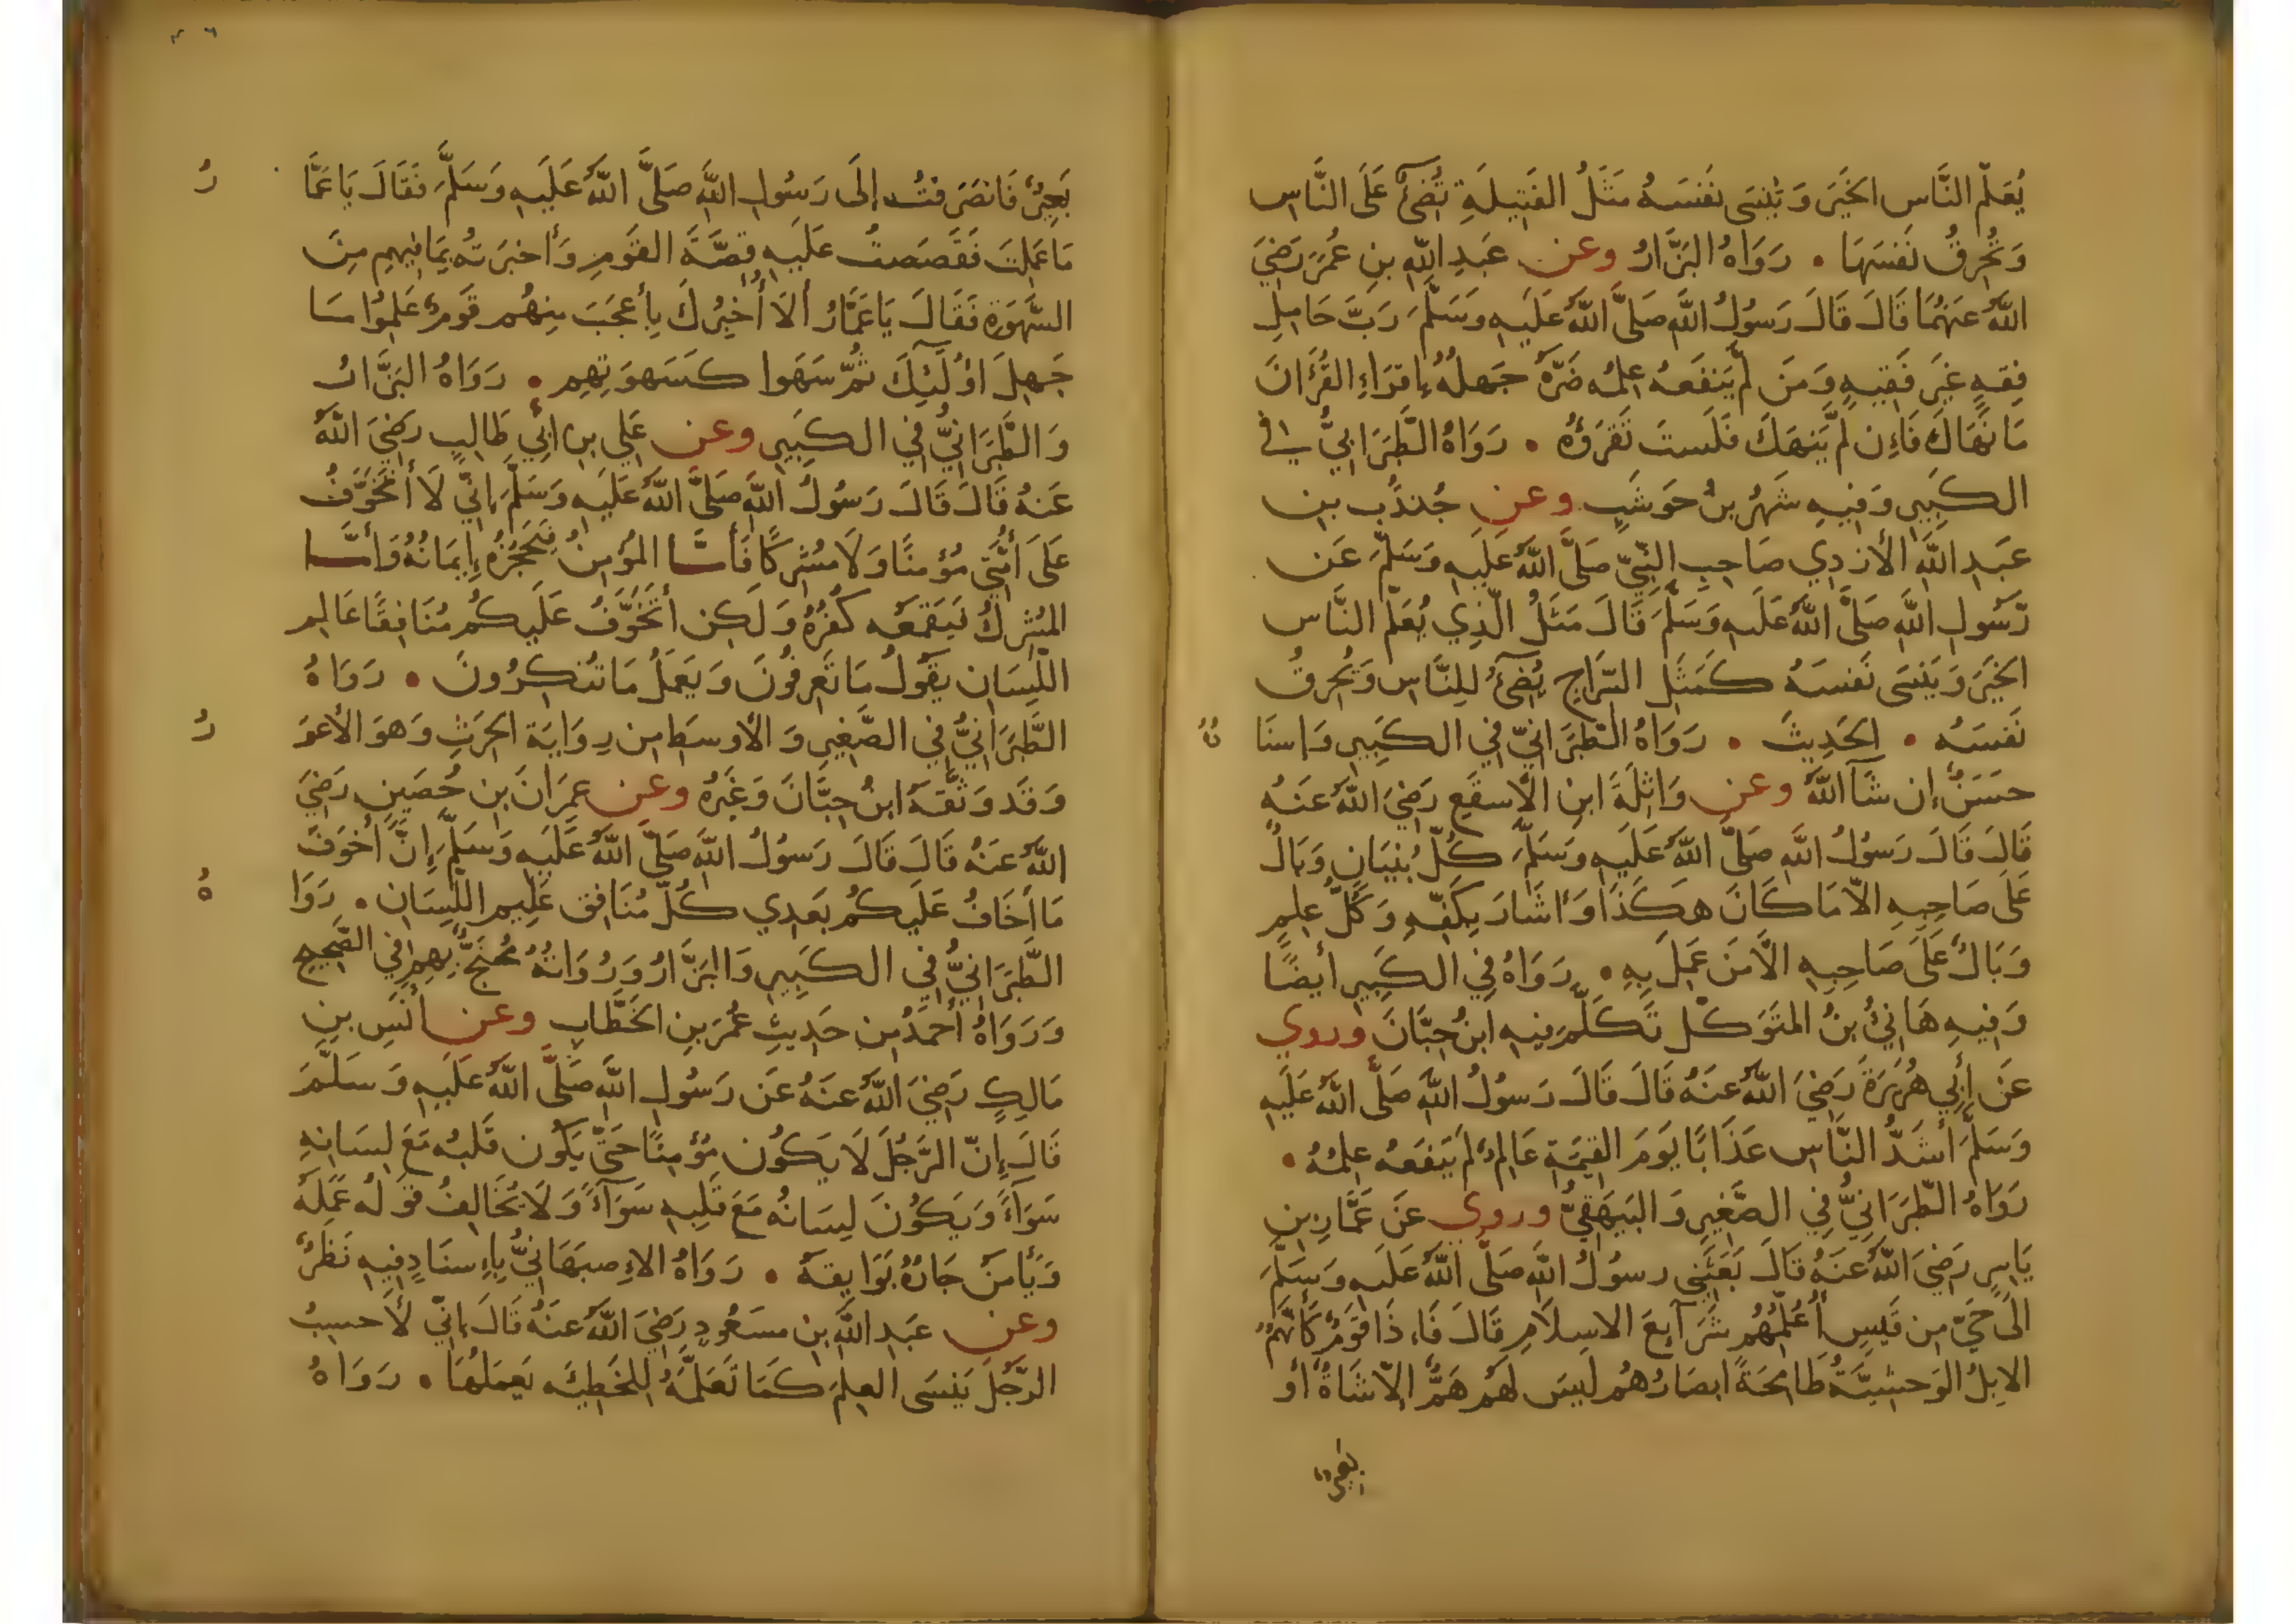 يُعَلِّمُ النَّاسَ الخَيرَ وَيَنسَى نَفسَهُ مَثَلُ الفَتِيلَةِ تُضِيءُ عَلَى النَّاسِ
وَتُحرِقُ نَفسَهَا • رَوَاهُ البَزَّارُ وعن عَبدِ اللَّهِ بنِ عُمَرَ رَضِيَ
اللَّهُ عَنهُمَا قَالَ قَالَ رَسُولُ اللَّهِ صَلَّى اللَّهُ عَلَيهِ وَسَلَّمَ رَبَّ حَامِلِ
فِقهٍ غَيرَ فَقِيهٍ وَمَن لَم يَنفَعهُ عِلمُه ضَرَّهُ جَهلُهُ إِقرَاءِ القُرءَانَ
مَا نَهَاكَ فَإِن لَم يَنهَكَ فَلَستَ تَقرَؤُهُ • رَوَاهُ الطَّبَرَانِيُّ في
الكَبِيرِ وَفِيهِ شَهرُ بنُ حَوشَبٍ وعن جُندُبِ بنِ
عَبدِ اللَّهِ الأَزدِي صَاحِبِ النَّبِيِّ صَلَّى اللَّهُ عَلَيهِ وَسَلَّمَ عَن
رَّسُولِ اللَّهِ صَلَّى اللَّهُ عَلَيهِ وَسَلَّمَ قَالَ مَثَلُ الَّذِي يُعَلِّمُ النَّاسَ
الخَيرَ وَيَنسَى نَفسَهُ كَمَثَلِ السِّرَاجِ يُضِيءُ لِلنَّاسِ وَيُحرِقُ
نَفسَهُ • الحَدِيثَ • رَوَاهُ الطَّبَرَانِيُّ فِي الكَبِيرِ وَإِسنَا دُهُ
حَسَنٌ إِن شَآ اللَّهُ وعن وَاثِلَةَ ابنِ الأَسقَعِ رَضِيَ اللَّهُ عَنهُ
قَالَ قَالَ رَسُولُ اللَّهِ صَلَّى اللَّهُ عَلَيهِ وَسَلَّمَ كُلُّ بُنيَانٍ وَبَالٌ
عَلَى صَاحِبِهِ الاَّ مَا كَانَ هَكَذَا وَأَشَارَ بِكَفِّهِ وَكُلُّ عِلمٍ
وَبَالٌ عَلَى صَاحِبِهِ الاَّ مَن عَمِلَ بِهِ • رَوَاهُ فِي الكَبِيرِ أَيضًا
وَفِيهِ هَانِئُ بنُ المُتَوَكِّلِ تَكَلَّمَ فِيهِ ابنُ حِبَّانَ وروي
عَن أَبِي هُرَيرَةَ رَضِيَ اللَّهُ عَنهُ قَالَ قَالَ رَسُولُ اللَّهِ صَلَّى اللَّهُ عَلَيهِ
وَسَلَّمَ أَشَدُّ النَّاسِ عَذَابًا يَومَ القِيمَةِ عَالِمٌ لَم يَنفَعهُ عِلمُهُ •
رَوَاهُ الطَّبَرَانِيُّ فِي الصَّغِيرِ وَالبَيهَقِيُّ وروي عَن عَمَّارِ بنِ
يَاسِرٍ رَضِيَ اللَّهُ عَنهُ قَالَ بَعَثَنِي رسولُ اللَّهِ صَلَّى اللَّهُ عَلَيهِ وَسَلَّمَ
الَى حَيٍّ مِن قَيسٍ أُعَلِّمُهُم شَرَآيِعَ الاِسلَامِ قَالَ فَإِذَا قَومٌ كَأَنَّهُمُ
الاِبِلُ الوَحشِيَّةُ طَامِحَةً ابصَارُهُم لَيسَ لَهُم هَمٌّ إِلاَّ شَاةٌ أَو
بعيرٌ
بَعِيرٌ فَانصَرَفتُ إِلَى رَسُولِ اللَّهِ صَلَّى اللَّهُ عَلَيهِ وَسَلَّمَ فَقَالَ يَا عَمَّا رُ
مَا عَمِلتَ فَقَصَصتُ عَلَيهِ قِصَّةَ القَومِ وَأَخبَرتُهُ بِمَا فِيهِم مِنَ
السَّهوَةِ فَقَالَ يَا عَمَّارُ أَلاَ أُخبِرُكَ بِأَعجَبَ مِنهُم قَومٌ عَلِمُوا مَا
جَهِلَ اوُلَئِكَ ثُمَّ سَهَوا كَسَهوَتِهِم • رَوَاهُ البَزَّارُ
وَالطَّبَرَانِيُّ فِي الكَبِيرِ وعن عَلِيِ بنِ أَبِي طَالِبٍ رَضِيَ اللَّهُ
عَنهُ قَالَ قَالَ رَسُولُ اللَّهِ صَلَّى اللَّهُ عَلَيهِ وَسَلَّمَ إِنِّي لَا أَتَخَوَّفُ
عَلَى أُمَّتِي مُؤمِنًا وَلَا مُشرِكًا فَأَمَّا المُؤمِنُ فَيَحجُزُهُ إِيمَانُهُ وَأَمَّا
المُشرِكُ فَيَقمَعُه كُفرُهُ وَلَكِن أَتَخَوَّفُ عَلَيكُم مُنَافِقًا عَالِم
اللِّسَانِ يَقُولُ مَا تَعرِفُونَ وَيَعمَلُ مَا تُنكِرُونَ • رَوَاهُ
الطَّبَرَانِيُّ فِي الصَّغِيرِ وَالأَوسَطِ مِن رِوَايَةِ الحَرثِ وَهوَ الأَعوَ رُ
وَقَد وَثَّقَهُ ابنُ حِبَّانَ وَغَيرُهُ وعن عِمرَانَ بنِ حُصَينٍ رَضِيَ
اللَّهُ عَنهُ قَالَ قَالَ رَسُولُ اللَّهِ صَلَّى اللَّهُ عَلَيهِ وَسَلَّمَ إِنَّ أَخوَفَ
مَا أَخَافُ عَلَيكُم بَعدِي كُلُّ مُنَافِقٍ عَلِيمِ اللِّسَانِ • رَوَا هُ
الطَّبَرَانِيُّ فِي الكَبِيرِ وَالبَزَّارُ وَرُوَاتُهُ مُحتَجٌّ بِهِم فِي الصَّحِيحِ
وَرَوَاهُ أَحمَدُ مِن حَدِيثِ عُمَرَ بنِ الخَطَّابِ وعن أَنَسِ بنِ
مَالِكٍ رَضِيَ اللَّهُ عَنهُ عَن رَسُولِ اللَّهِ صَلَّى اللَّهُ عَلَيهِ وَسَلَّمَ
قَالَ إِنَّ الرَّجُلَ لَا يَكُونُ مُؤمِنًا حَتَّى يَكُونَ قَلبُه مَعَ لِسَانِهِ
سَوَآءً وَيَكُونَ لِسَانُهُ مَعَ قَلبِهِ سَوَآءً وَلَا يُخَالِفُ قَولُه عَمَلَهُ
وَيَأمَنَ جَارُهُ بَوَايِقَهُ • رَوَاهُ الاِصبَهَانِيُّ بِإِسنَادٍ فِيهِ نَظَرٌ
وعن عَبدِ اللَّهِ بنِ مسعُودٍ رَضِيَ اللَّهُ عَنهُ قَالَ إِنِّي لَأَحسِبُ
الرَّجُلَ يَنسَى العِلمَ كَمَا تَعَلَّمَهُ لِلخَطِيئَه يَعمَلُهَا • رَوَاهُ